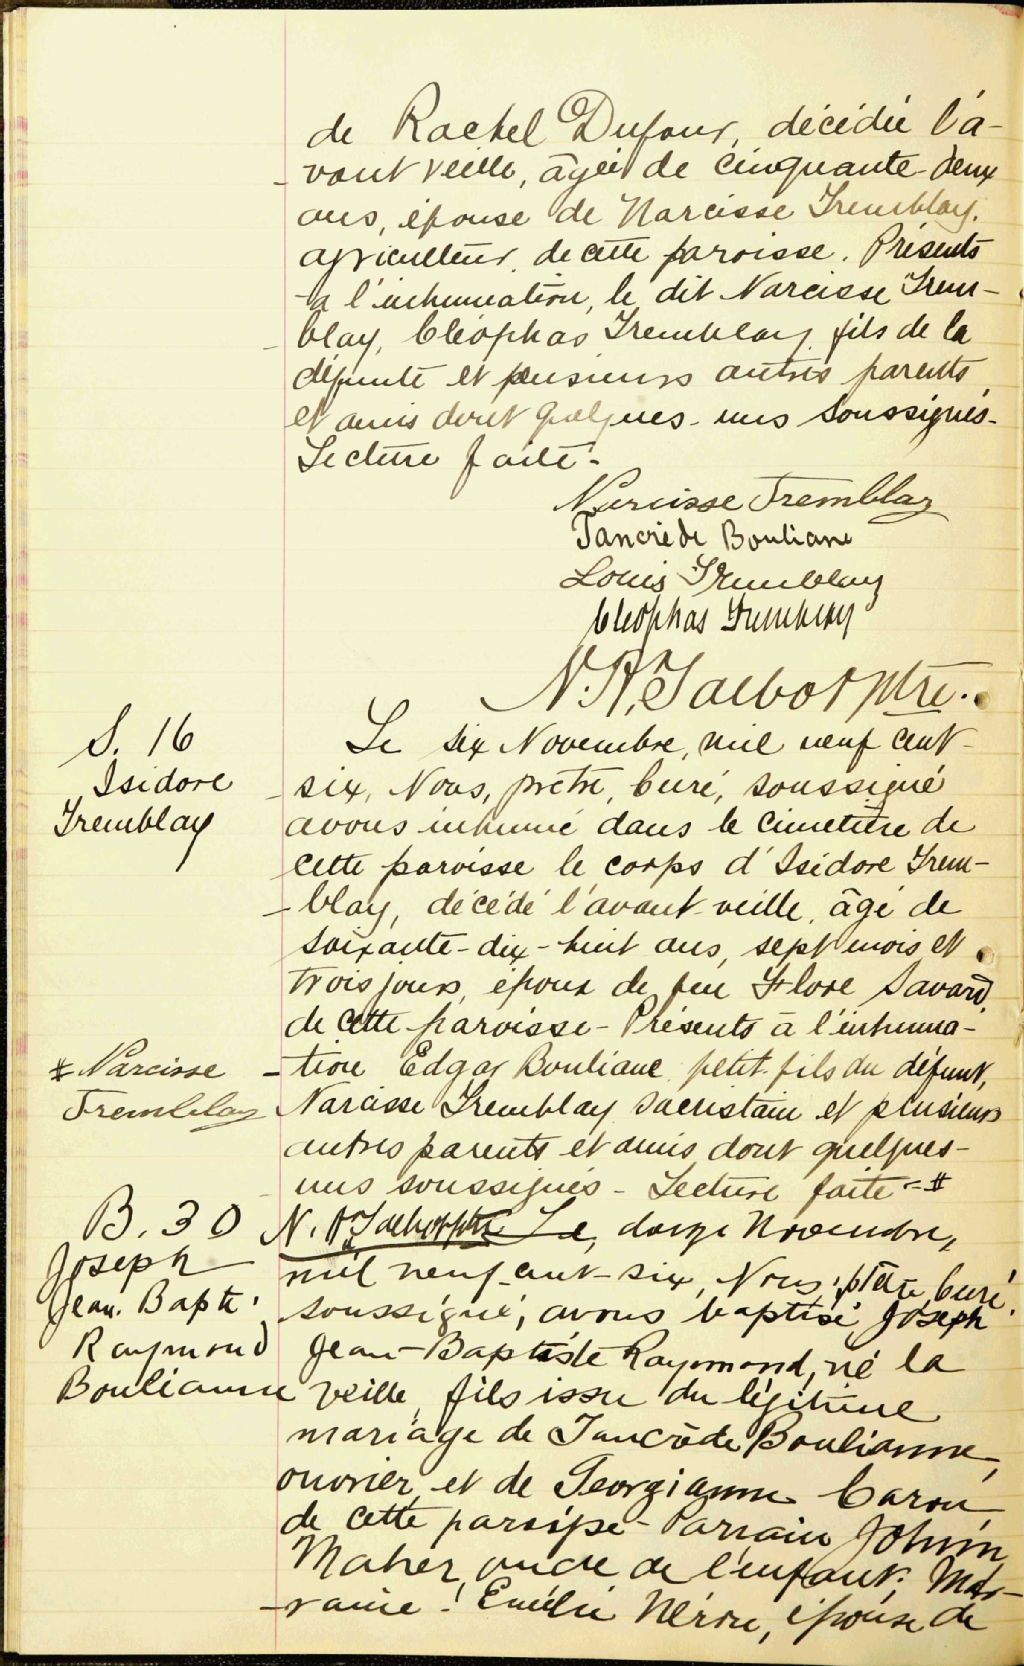 de Rachel Dufour, décédée l'a-
vant veille, âgée de cinquante-deux
ans, épouse de Narcisse Tremblay,
agriculteur, de cette paroisse. Présents
à l'inhumation, le dit Narcisse Trem-
blay, Cléophas Tremblay, fils de la
défunte et plusieurs autres parents
et amis dont quelques-uns soussignés.
Lecture faite.
Narcisse Tremblay
Tancrède Bouliane
Louis Tremblay
Cléophas Tremblay
N. R. Talbot ptre.
S. 16
Isidore
Tremblay
Le six Novembre, mil neuf cent-
six, Nous, prêtre, Curé, soussigné
avons inhumé dans le cimetière de
cette paroisse le corps d'Isidore Trem-
blay, décédé l'avant-veille, âgé de
soixante-dix-huit ans, sept mois et
trois jours, époux de feu Flore Savard
de cette paroisse - Présents à l'inhuma-
tion Edgar Bouliane petit-fils du défunt,
Narcisse Tremblay sacristain et plusieurs
autres parents et amis dont quelques-
uns soussignés - Lecture faite - #
# Narcisse
Tremblay
B. 30
Joseph
Jean. Bapte.
Raymond
Boulianne
N. R. Talbot ptre Le, douze Novembre,
mil neuf-cent-six, Nous, ptre curé,
soussigné, avons baptisé, Joseph
Jean-Baptiste Raymond, né la
veille, fils issu du légitime
mariage de Tancrède Boulianne,
ouvrier, et de Georgianne Caron,
de cette paroisse - Parrain Johnin
Maher, oncle de l'enfant; Mar-
raine : Emélie Néron, épouse de